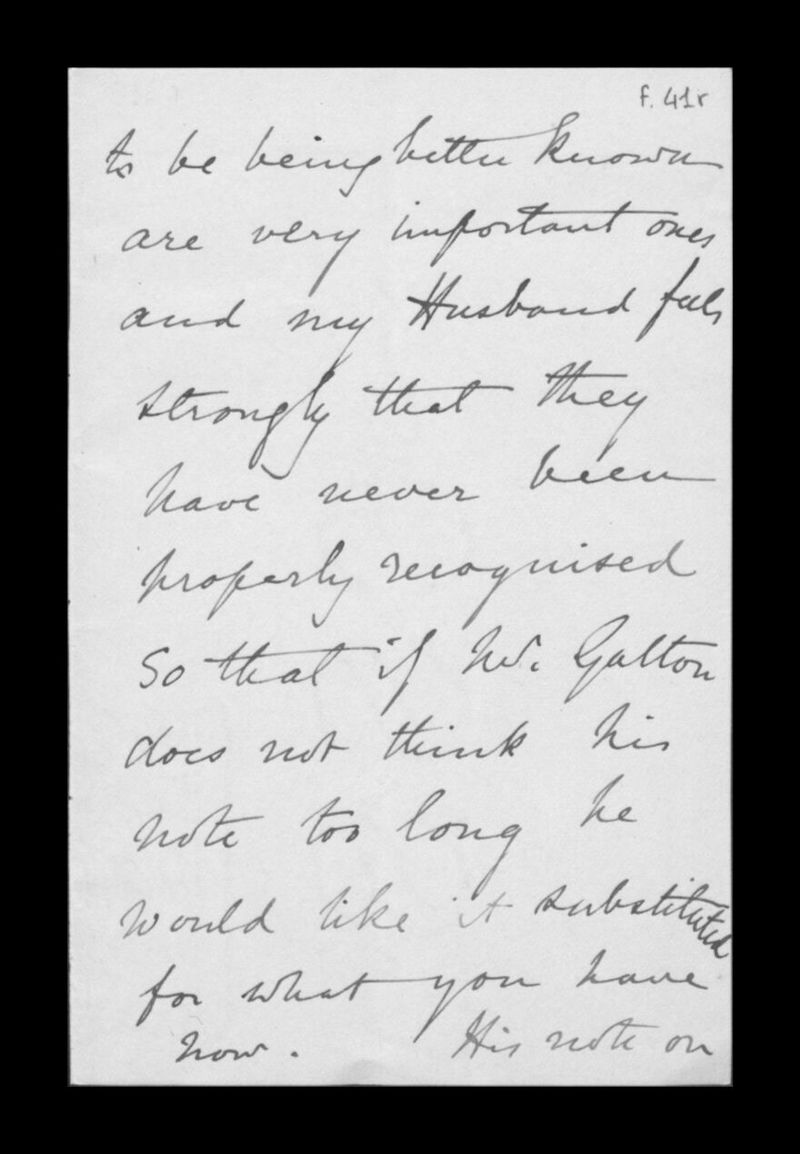 f. 41r
to be being better known
are very important ones
and my Husband feels
strongly that they
have never been
properly recognised
So that if Mr. Galton
does not think his
note too long he
would like it substituted
for what you have
now. His note on